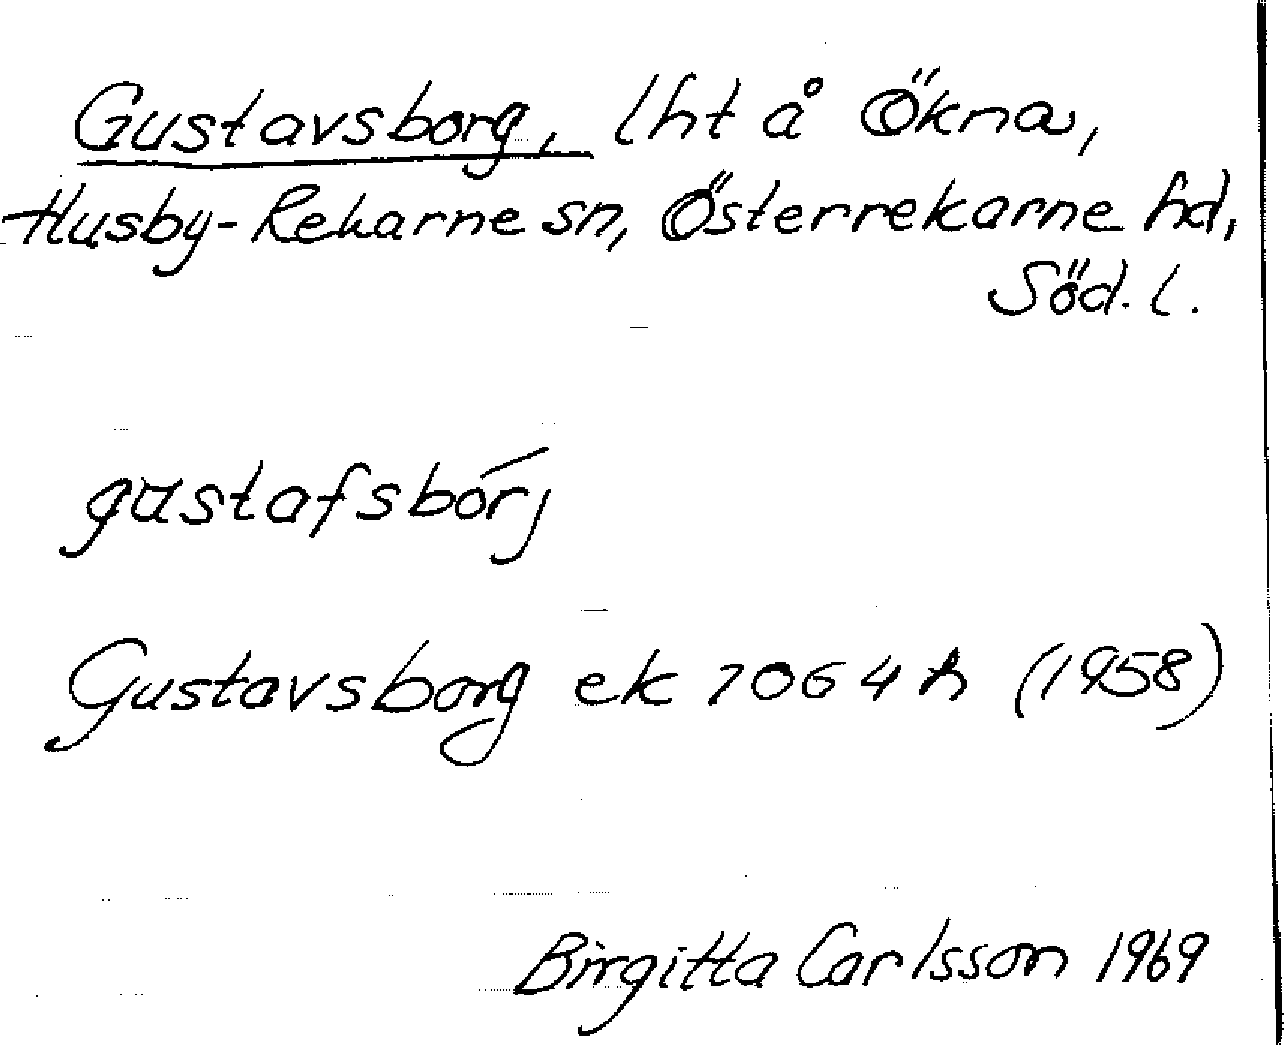 Gustavsborg, lht å Ökna,
Husby-Rekarne sn, Österrekarne hd,
Söd. l.
gustafsbórj
Gustavsborg ek 7064 h (1958)
Birgitta Carlsson 1969